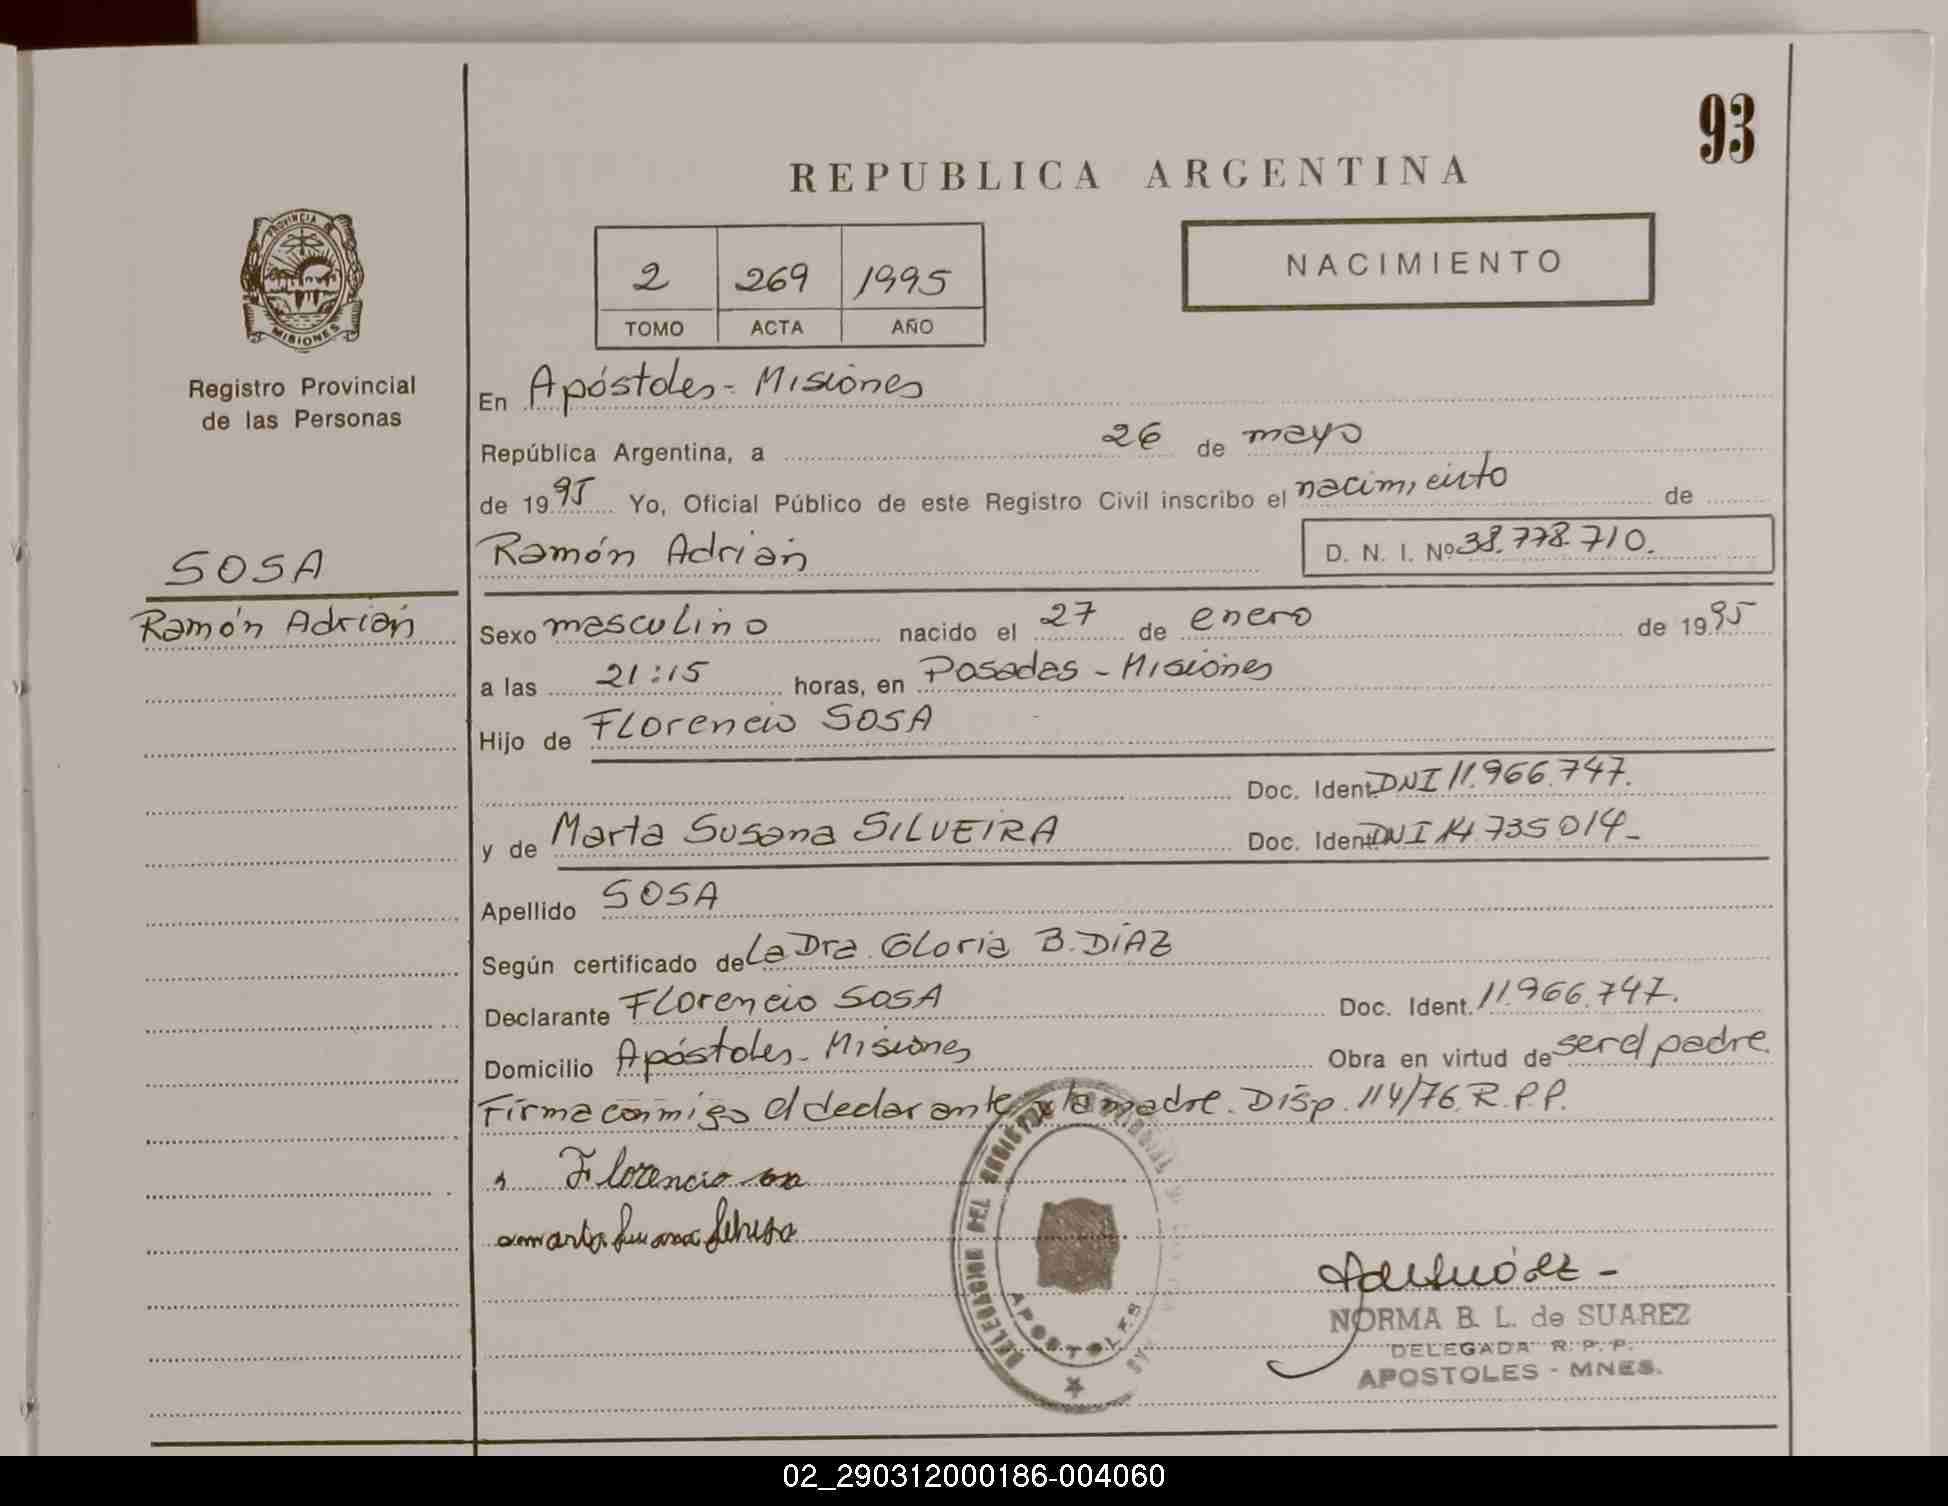 93
REPUBLICA ARGENTINA
PROVINCIA DE
MISIONES
Registro Provincial
de las Personas
2 269 1995
TOMO ACTA AÑO
NACIMIENTO
En Apóstoles - Misiones
República Argentina, a 26 de mayo
de 1995 Yo, Oficial Público de este Registro Civil inscribo el nacimiento de
Ramón Adrián D. N. I. Nº 38.778.710.
SOSA
Ramón Adrián
Sexo masculino nacido el 27 de enero de 1995
a las 21:15 horas, en Posadas - Misiones
Hijo de Florencio SOSA
Doc. Ident. DNI 11.966.747.
y de Marta Susana SILVEIRA Doc. Ident. DNI 14.735014_
Apellido SOSA
Según certificado de La Dra. Gloria B. DÍAZ
Declarante Florencio SOSA Doc. Ident. 11.966.747.
Domicilio Apóstoles - Misiones Obra en virtud de ser el padre.
Firma conmigo el declarante y la madre. Disp. 114/76 R.P.P.
Florencio
DELEGACION DEL REGISTRO PROVINCIAL
APOSTOLES
NORMA B. L. de SUAREZ
DELEGADA R. P. P.
APOSTOLES - MNES.
02_290312000186-004060